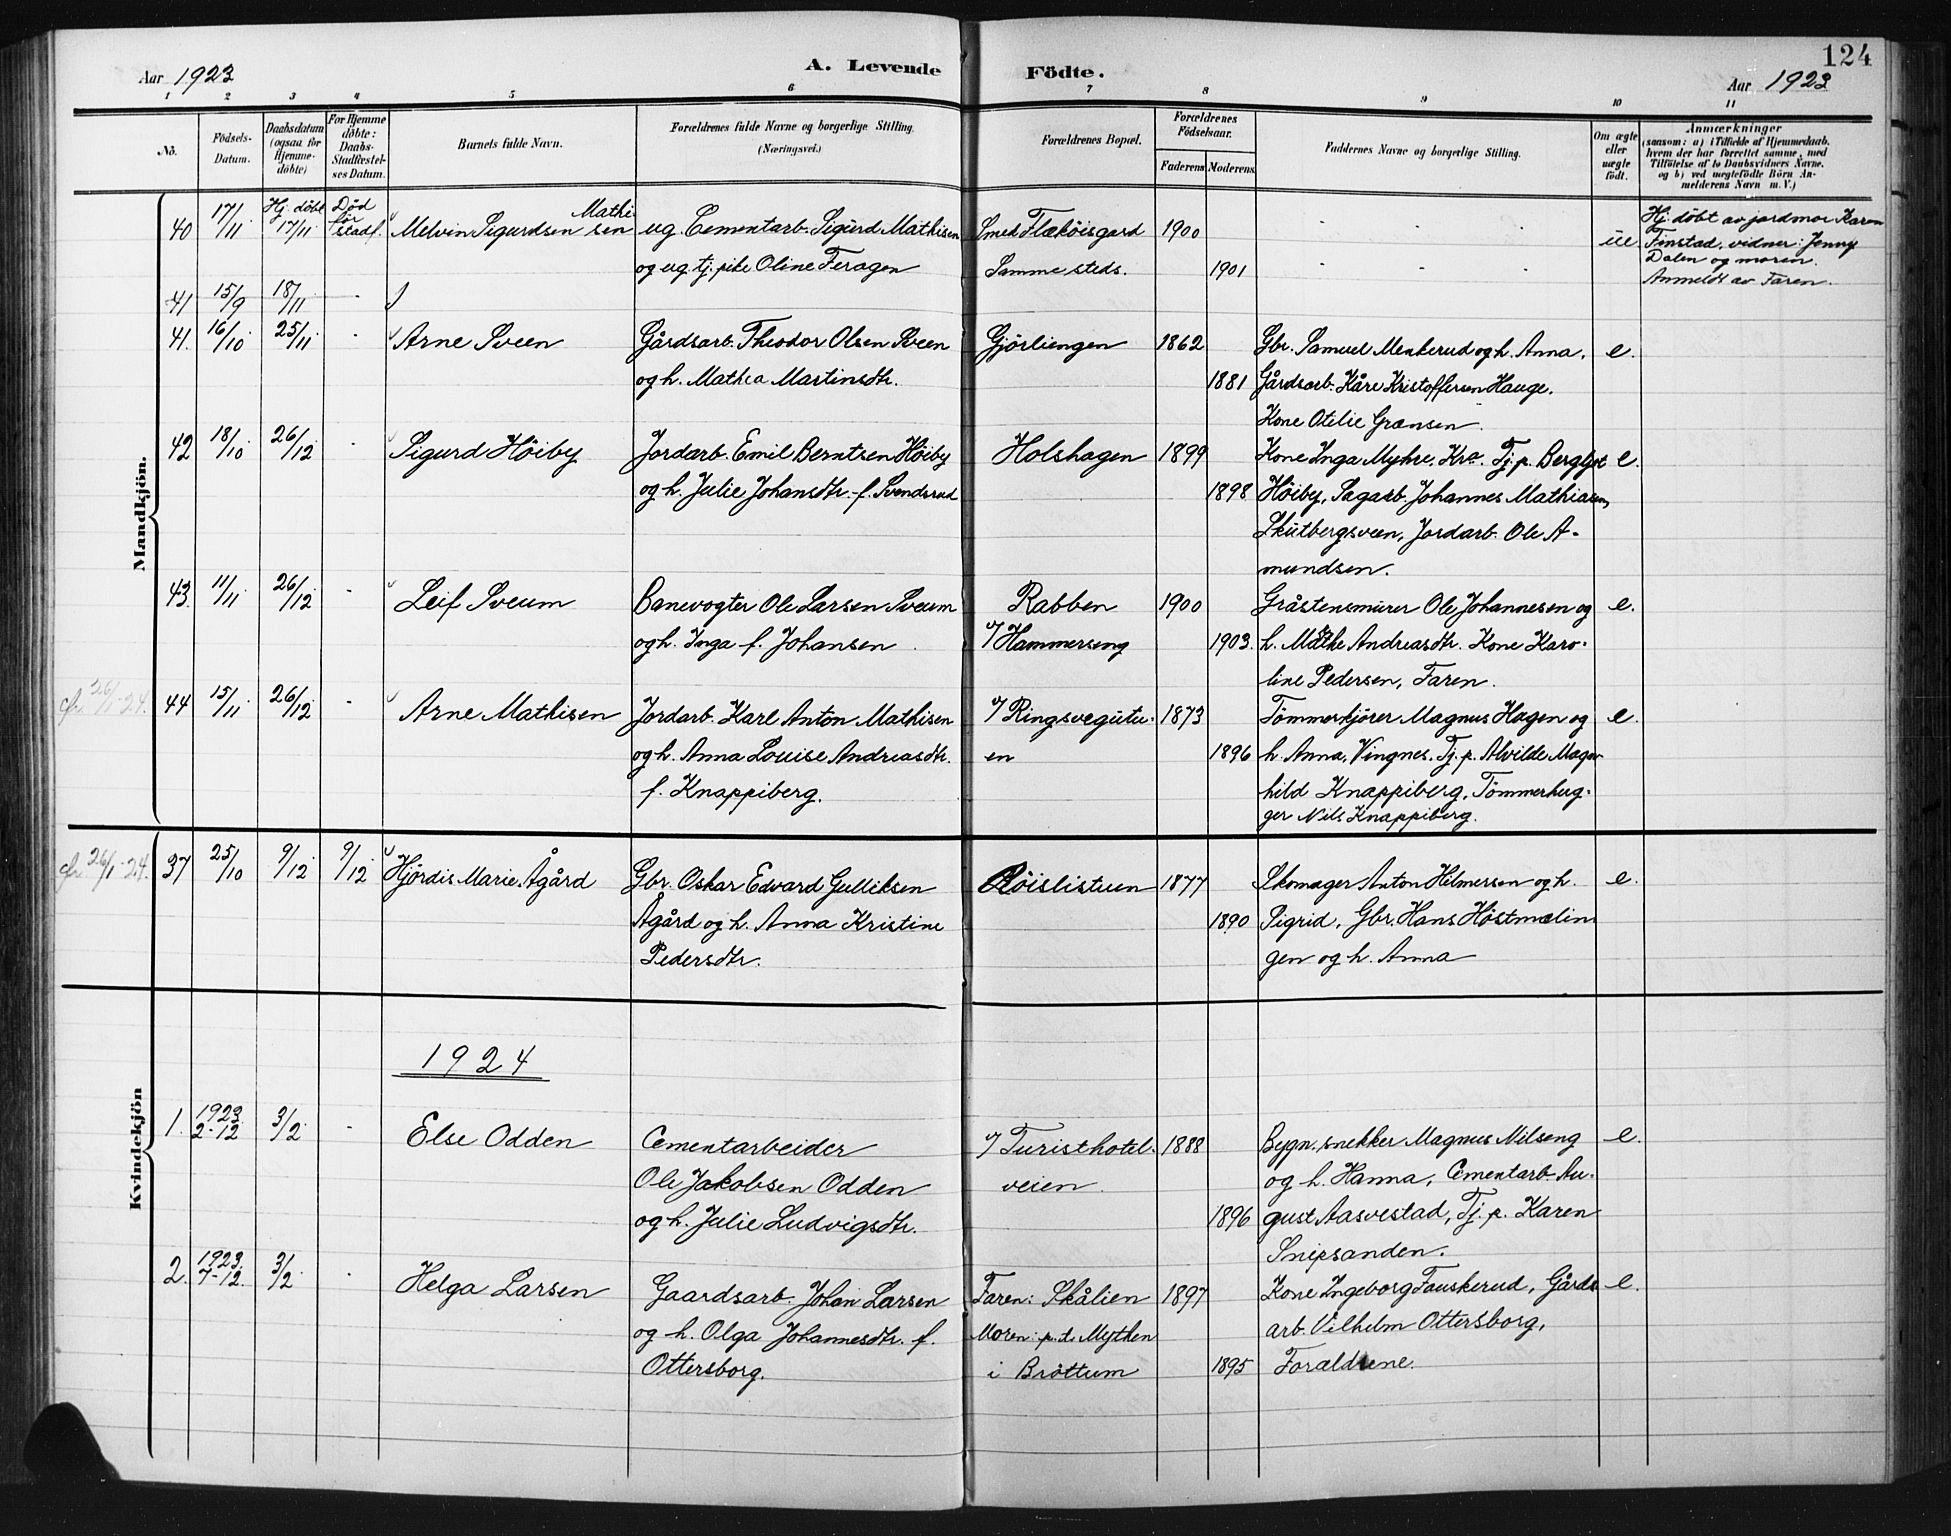 124
Aar 1923
A. Levende Födte.
Aar 1923
1 2 3 4 5 6 7 8 9 10 11
No.
Födsels-Datum.
Daabsdatum (ogsaa for Hjemme-döbte)
For Hjemme döbte: Daabs-Stadfæstel-ses Datum.
Barnets fulde Navn.
Forældrenes fulde Navne og borgerlige Stilling.
(Næringsvei.)
Forældrenes Bopæl.
Forældrenes Födselsaar.
Faderens Moderens
Faddernes Navne og borgerlige Stilling.
Om ægte eller uægte födt.
Anmærkninger
(saasom: a) i Tilfælde af Hjemmedaab,
hvem der har forrettet samme, med
Tilföielse af to Daabsvidners Navne,
og b) ved uægtefödte Börn An-
melderens Navn m. V.)
Mandkjön.
40 17/11 Hj. döbt 17/11 Död för stadf. Melvin Sigurdsen Mathisen ug. Cementarb. Sigurd Mathisen Smed Flæköisgard 1900 ue
og ug. tj. pike Oline Feragen Sammesteds. 1901
Hj. döbt av jordmor Karen
Finstad, vidner: Jenny
Dalen og moren.
Anmeldt av Faren.
41 15/9 18/11
41. 16/10 25/11 - Arne Sveen Gårdsarb. Theodor Olsen Sveen Gjörliengen 1862 Gbr. Samuel Menkerud og h. Anna, e.
og h. Mathea Martinsdtr. 1881 Gårdsarb. Kåre Kristoffersen Hauge.
Kone Otilie Grænsen.
42 18/10 26/12 - Sigurd Höiby Jordarb. Emil Berntsen Höiby Holshagen 1899 Kone Inga Myhre, Kra. Tj. p. Bergljot e.
og h. Julie Johansdtr. f. Svendsrud 1898 Höiby, Sagarb. Johannes Mathiasen,
Skutbergsveen, Jordarb. Ole A-
mundsen.
43. 11/11 26/12 - Leif Sveum Banevogter Ole Larsen Sveum Rabben 1900 Gråstensmurer Ole Johannesen og e.
og h. Inga f. Johansen u/ Hammerseng 1903. h. Mathe Andreasdtr. Kone Karo-
line Pedersen, Faren.
fr. 26/1-24. 44 15/11 26/12 - Arne Mathisen Jordarb. Karl Anton Mathisen u/ Ringsvegutu- 1873 Tömmerkjörer Magnus Hagen og e.
og h. Anna Louise Andreasdtr. en 1896 h. Anna, Vingnes. Tj. p. Alvilde Magn-
f. Knappiberg. hild Knappiberg, Tömmerhug-
ger Nils Knappiberg.
fr. 26/1-24. 37 25/10 9/12 9/12 Hjördis Marie Ågård Gbr. Oskar Edvard Gulliksen Röislistuen 1877 Skomager Anton Hilmersen og h. e.
Ågård og h. Anna Kristine 1890 Sigrid, Gbr. Hans Höstmælin
Pedersdtr. gen og h. Anna
Kvindekjön
1924
1. 1923 2-12 3/2 - Else Odden Cementarbeider u/ Turisthotel- 1888 Bygn. snekker Magnus Nilseng e.
Ole Jakobsen Odden veien. og h. Hanna, Cementarb. Au-
og h. Julie Ludvigsdtr. 1896 gust Aasvestad, Tj. p. Karen
Snipsanden.
2. 1923 7-12. 3/2 - Helga Larsen Gaardsarb. Johan Larsen Faren: Skålien 1897 Kone Ingeborg Fauskerud, Gårds e.
og h. Olga Johannesdtr. f. Moren: p.t. Mythen arb. Vilhelm Ottersborg,
Ottersborg. i Bröttum 1895 Forældrene.